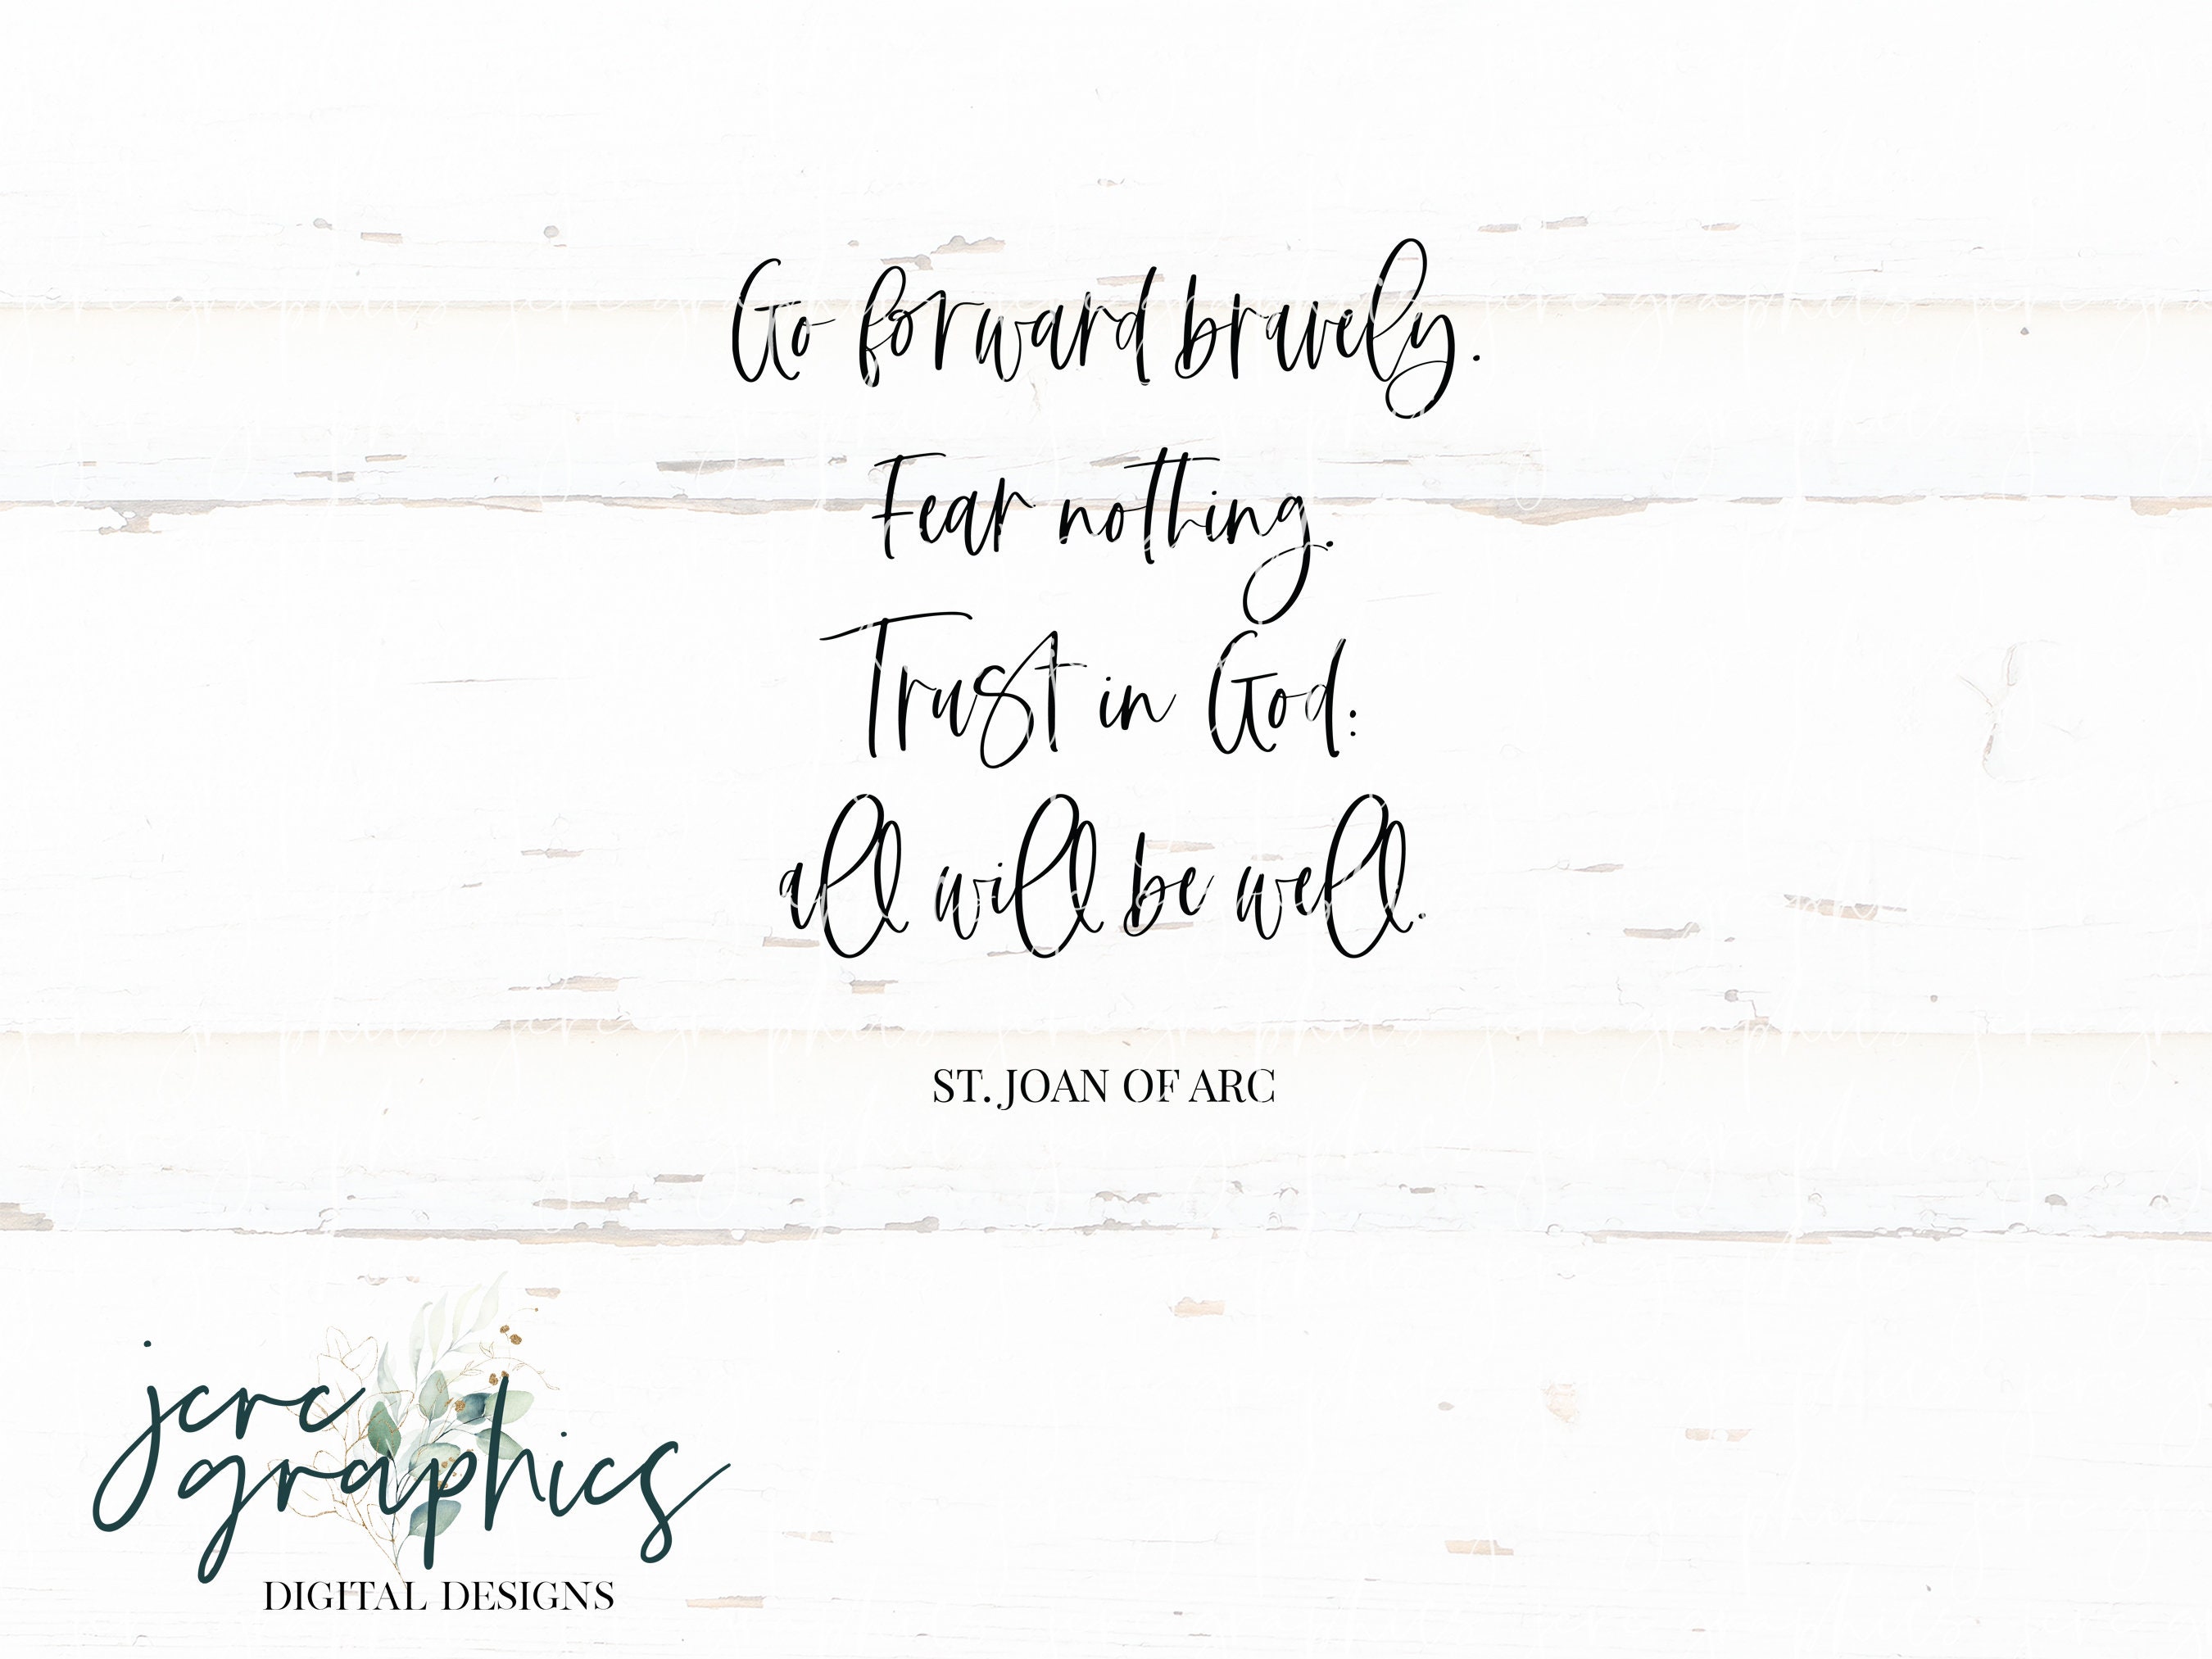 Go forward bravely.
Fear nothing.
Trust in God:
all will be well.
ST. JOAN OF ARC
jcrc
graphics
DIGITAL DESIGNS